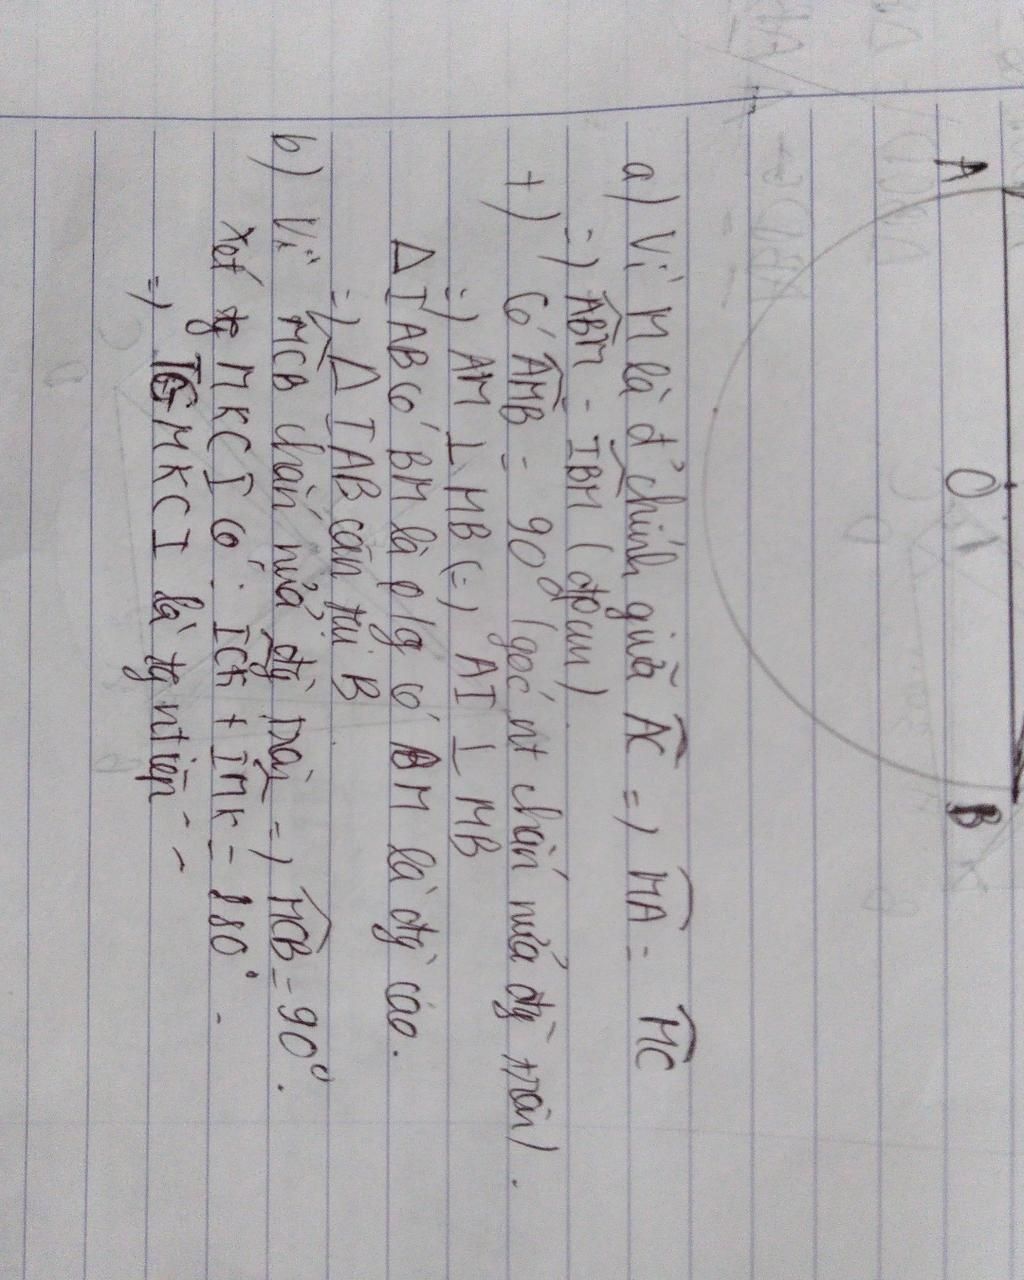 A O B
a) Vì M là đ' chính giữa AC => MA = MC
=> ABM = IBM (đpcm)
+) Có AMB = 90° (góc nt chắn nửa đg tròn).
=> AM ⊥ MB (=) AI ⊥ MB
Δ IAB có BM là p/g có BM là đg cao.
=> Δ IAB cân tại B
b) Vì MCB chắn nửa đg tròn => MCB = 90°.
Xét tg MKCI có: ICK + IMK = 180°.
=> MKCI là tg ntiếp